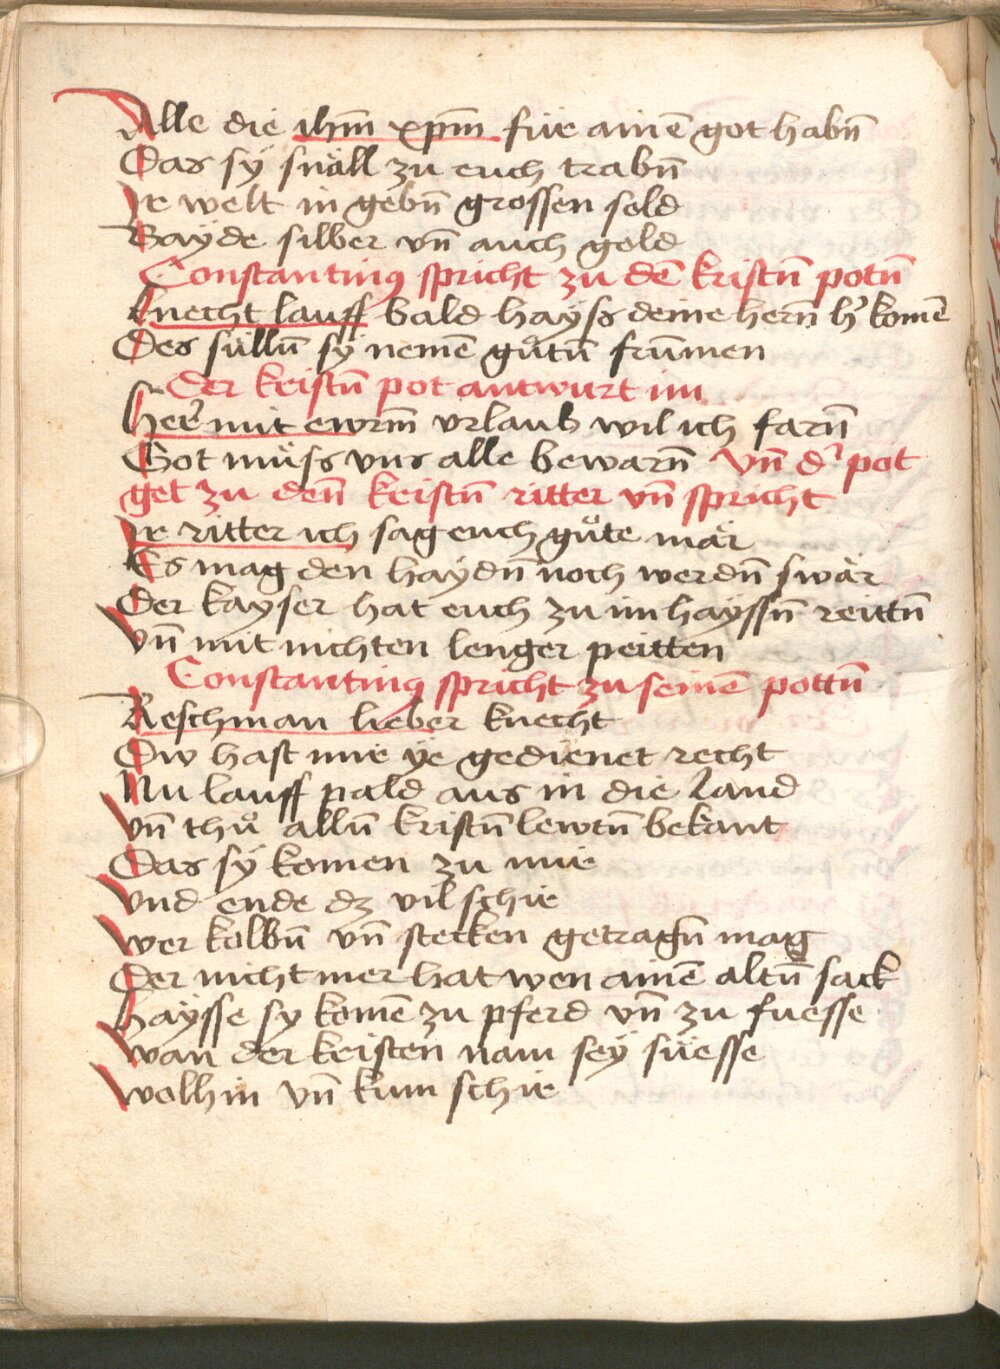 Alle die ihm̄ xp̄m für ainē got habn̄
Das sÿ snäll zu euch trabn̄
Ir welt in gebn̄ grossen sold
Bayde silber vn̄ auch gold
Constantinus spricht zu dē kristn̄ potn̄
Knecht lauff bald hayss deine hern̄ h' komē
Des sülln̄ sÿ nemē gůtn̄ frūmen
Der kristn̄ pot antwurt im
Her mit ewrm̄ vrlaub wil ich farn̄
Got müss vns alle bewarn̄ Vn̄ d' pot
get zu den̄ kristn̄ ritter vn̄ spricht
Ir ritter ich sag euch gůte mär
Es mag den haydn̄ noch werdn̄ swär
Der kayser hat euch zu im hayssn̄ reittn̄
Vn̄ mit nichten lenger peitten
Constantinus spricht zu seinē pottn̄
Reschman lieber knecht
Dw hast mir ÿe gedienet recht
Nu lauff pald aus in die land
Vn̄ thů alln̄ kristn̄ lewtn̄ bekant
Das sÿ komen zu mir
Vnd ende dz vil schir
Wer kolbn̄ vn̄ stecken getragn̄ mag
Der nicht mer hat wen ainē altn̄ sack
Haysse sy komē zu pferd vn̄ zu fuesse
Wan der kristen nam sey süesse
Wolhin vn̄ kum schir